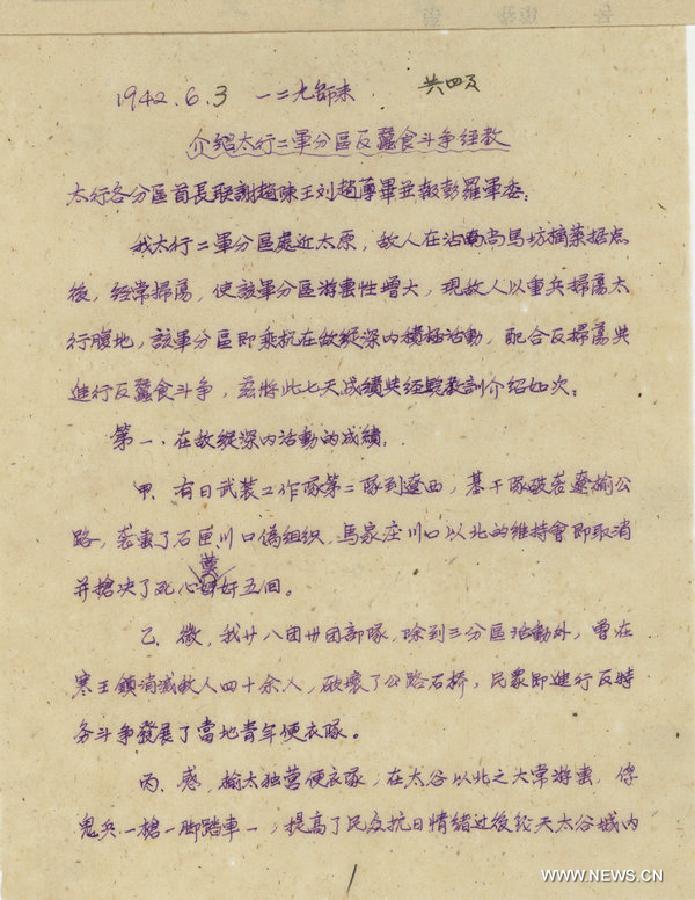 1942.6.3 一二九師来 共四頁
介紹太行二軍分區反蠶食斗争经教
太行各分區首長耿謝趙陳王刘趙薄畢並報彭羅軍委:
我太行二軍分區處近太原,敌人在沾南尚馬坊摘菜据点
後,经常掃蕩,使該軍分區游击性增大,現敌人以重兵掃蕩太
行腹地,該軍分區即乘机在敌縱深内積極活動,配合反掃蕩與
進行反蠶食斗争,兹將此七天成績與经驗教訓介绍如次:
第一、在敌縱深内活動的成績:
甲、有日武装工作隊第二隊到遼西,基干隊破若遼榆公
路,袭击了石匣川口偽組织,馬家庄川口以北的维持會即取消
并槍决了死心漢奸五個。
乙、微,我廿八团卅团部隊,除到三分區活動外,曾在
寒王鎮消滅敌人四十余人,破壞了公路石桥,民衆即進行反特
务斗争發展了當地青年便衣隊。
丙、感,榆太独营便衣隊,在太谷以北之大常游击,俘
鬼兵一槍一脚踏車一,提高了民众抗日情緒过後於天太谷城内
1
WWW.NEWS.CN